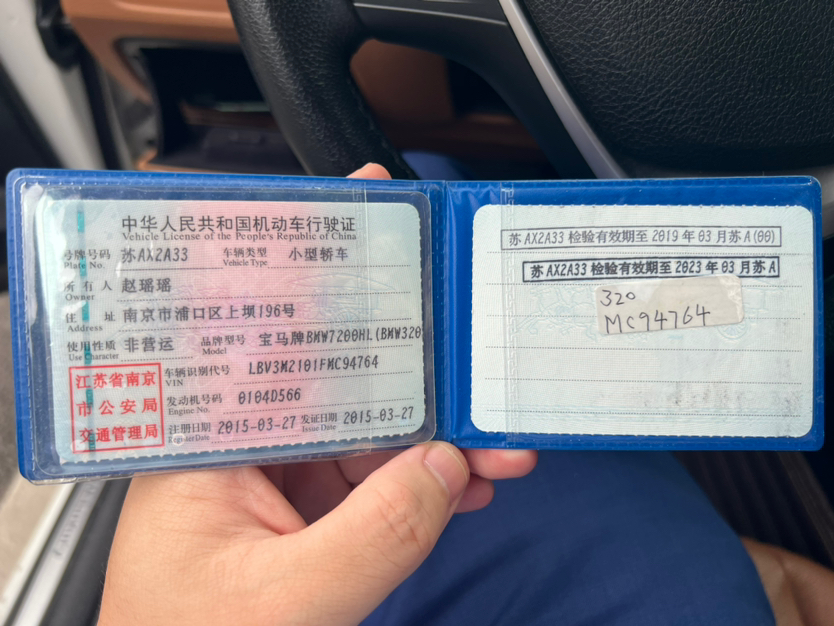 中华人民共和国机动车行驶证
Vehicle License of the People's Republic of China
号牌号码 苏AX2A33 车辆类型 小型轿车
Plate No. Vehicle Type
所有人 赵瑶瑶
Owner
住址 南京市浦口区上坝196号
Address
使用性质 非营运 品牌型号 宝马牌BMW7200HL(BMW320
Use Character Model
江苏省南京
市公安局
交通管理局
车辆识别代号 LBV3M2101FMC94764
VIN
发动机号码 0104D566
Engine No.
注册日期 2015-03-27 发证日期 2015-03-27
Register Date Issue Date
苏AX2A33 检验有效期至 2019 年 03 月苏A(00)
苏AX2A33 检验有效期至 2023 年 03 月苏A
320
MC94764